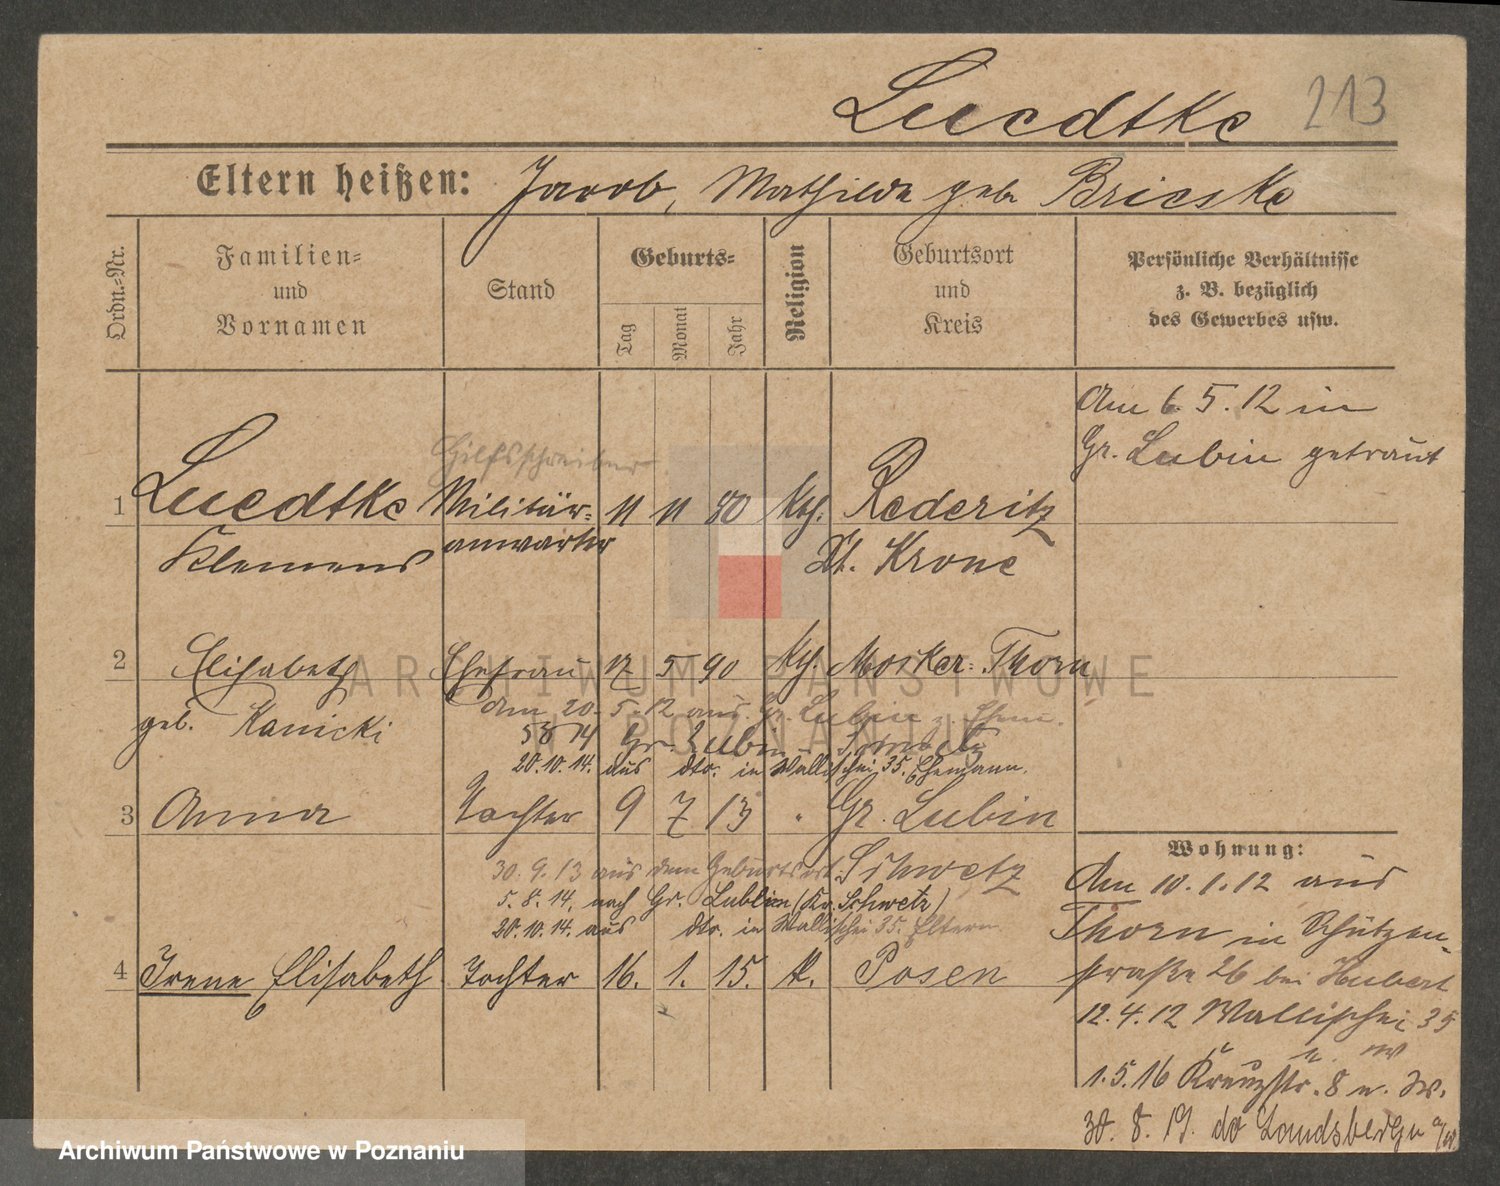 Luedtke 213
Eltern heißen: Jacob, Mathilde geb Brieske
Ordn.-Nr.
Familien-
und
Vornamen
Stand
Geburts-
Tag
Monat
Jahr
Religion
Geburtsort
und
Kreis
Persönliche Verhältnisse
z. B. bezüglich
des Gewerbes usw.
Am 6 5. 12 in
Gr. Lubin getraut
Hilfsschreiber
1 Luedtke Militär- 11 11 80 kth. Rederitz
Klemens anwärter Dt. Krone
2 Elisabeth Ehefrau 17 5 90 kth. Mocker-Thorn
Am 20. 5. 12 aus Gr. Lubin z. Ehem.
geb. Kanicki 5 8 14 Gr. Lubin Schwetz
20.10.14. aus dto. in Wallischei 35. Ehemann.
3 Anna Tochter 9 7 13 " Gr. Lubin
30. 9. 13 aus dem Geburtsort Schwetz
5. 8. 14, nach Gr. Lubin (Kr. Schwetz)
20.10.14. aus dto. in Wallischei 35. Eltern
4 Irene Elisabeth Tochter 16. 1. 15. k. Posen
Wohnung:
Am 10. 1. 12 aus
Thorn in Schützen-
straße 26 bei Hubert
12. 4. 12 Wallischei 35
1. 5. 16 Kreuzstr. 8
30. 8. 19. do Landsberga a/W.
ARCHIWUM PAŃSTWOWE
W POZNANIU
Archiwum Państwowe w Poznaniu